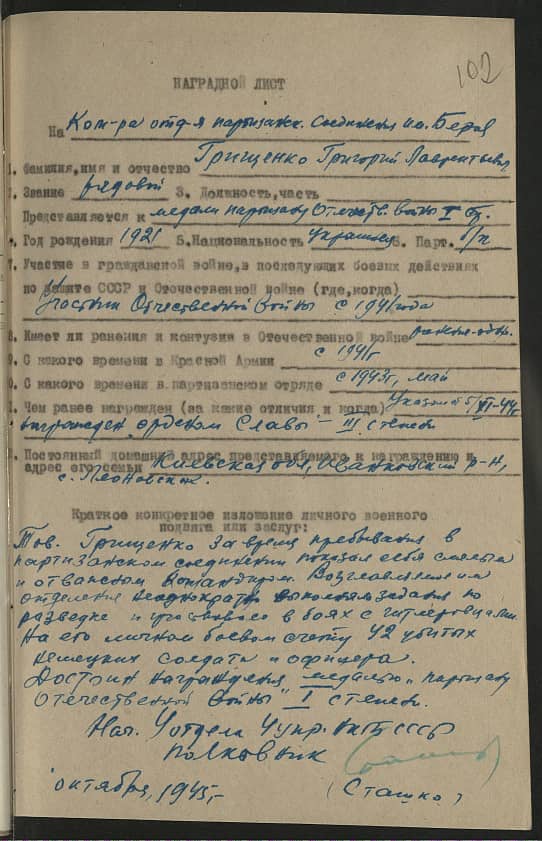 102
НАГРАДНОЙ ЛИСТ
На Ком-ра отд-я партизанск. соединения им. Берия
1. Фамилия, имя и отчество Грищенко Григорий Лаврентьевич
2. Звание рядовой 3. Должность, часть
Представляется к медали партизану Отечеств. войны I ст.
4. Год рождения 1921 5. Национальность украинец 6. Парт. б/п
7. Участие в гражданской войне, в последующих боевых действиях
по защите СССР и Отечественной войне (где, когда)
Участник Отечественной войны с 1941 года
8. Имеет ли ранения и контузии в Отечественной войне ранен
9. С какого времени в Красной Армии с 1941г
10. С какого времени в партизанском отряде с 1943г, май
11. Чем ранее награжден (за какие отличия и когда) Указом 44г
награжден орденом Славы – III степени
12. Постоянный домашний адрес представляемого к награждению и
адрес его семьи Киевская обл, Иванковский р-н,
с.
Краткое конкретное изложение личного военного
подвига или заслуг:
Тов. Грищенко за время пребывания в
партизанском соединении показал себя смелым
и отважным командиром. Возглавляемое им
отделение неоднократно выполняло задания по
разведке и участвовало в боях с гитлеровцами.
На его личном боевом счету 42 убитых
немецких солдата и офицера.
Достоин награждения медалью "партизану
Отечественной войны" I степени.
Нач. отдела 4 упр. НКГБ СССР
полковник
(Сташко)
октября, 1945г.